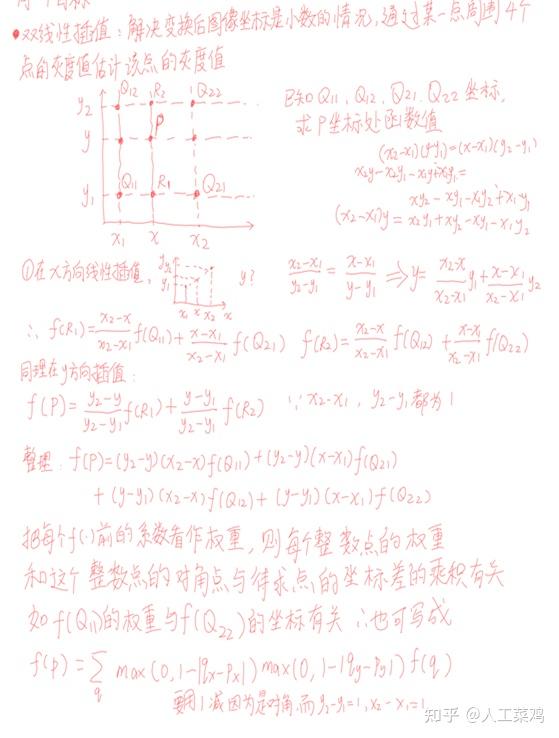 •双线性插值：解决变换后图像坐标是小数的情况，通过某一点周围4个
点的灰度值估计该点的灰度值
y₂ Q₁₂ R₂ Q₂₂
y P
y₁ Q₁₁ R₁ Q₂₁
x₁ x x₂
已知Q₁₁、Q₁₂、Q₂₁、Q₂₂坐标，
求P坐标处函数值
(x₂-x₁)(y-y₁)=(x-x₁)(y₂-y₁)
x₂y-x₂y₁-x₁y+x₁y₁=
xy₂-xy₁-x₁y₂+x₁y₁
(x₂-x₁)y=x₂y₁+xy₂-xy₁-x₁y₂
①在x方向线性插值， y y₂ y₁ x₁ x x₂ x y? (x₂-x₁)/(y₂-y₁) = (x-x₁)/(y-y₁) ⇒ y= (x₂-x)/(x₂-x₁) y₁ + (x-x₁)/(x₂-x₁) y₂
∴ f(R₁)= (x₂-x)/(x₂-x₁) f(Q₁₁)+ (x-x₁)/(x₂-x₁) f(Q₂₁) f(R₂)= (x₂-x)/(x₂-x₁) f(Q₁₂)+ (x-x₁)/(x₂-x₁) f(Q₂₂)
同理在y方向插值：
f(P)= (y₂-y)/(y₂-y₁) f(R₁)+ (y-y₁)/(y₂-y₁) f(R₂) ∵ x₂-x₁，y₂-y₁都为1
整理：f(P)=(y₂-y)(x₂-x)f(Q₁₁)+(y₂-y)(x-x₁)f(Q₂₁)
+(y-y₁)(x₂-x)f(Q₁₂)+(y-y₁)(x-x₁)f(Q₂₂)
把每个f(·)前的系数看作权重，则每个整数点的权重
和这个整数点的对角点与待求点的坐标差的乘积有关
如f(Q₁₁)的权重与f(Q₂₂)的坐标有关 ∴也可写成
f(p)=∑q max(0,1-|qx-px|)max(0,1-|qy-py|)f(q)
要用1减因为是对角，而y₂-y₁=1，x₂-x₁=1
知乎 @人工菜鸡